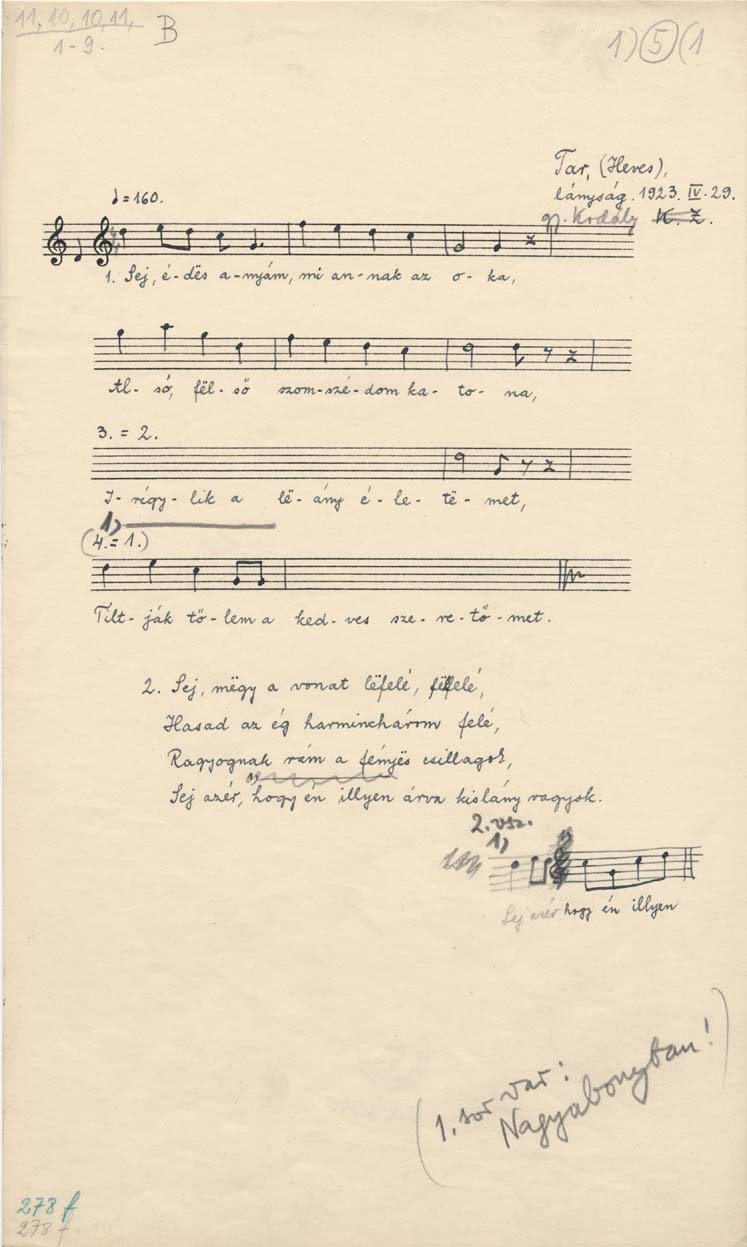 11, 10, 10, 11,
1-9.
B
1) 5 (1
Tar, (Heves),
lányság. 1923. IV. 29.
gy. Kodály K. Z.
♩=160.
1. Sej, é-dës a-nyám, mi an-nak az o-ka,
Al-só, fël-ső szom-szé-dom ka-to-na,
3. = 2.
I-rigy-lik a lë-ány é-le-të-met,
1)
(4. = 1.)
Tilt-ják tő-lem a ked-ves sze-re-tő-met.
2. Sej, mëgy a vonat lëfelé, fëlfelé,
Hasad az ég harminchárom felé,
Ragyognak rám a fényës csillagok,
1)
Sej azér, hogy én illyen árva kislány vagyok.
2. vsz.
1)
Sej azér hogy én illyen
(1. sor var:
Nagyabonyban!)
278 f
278 f.